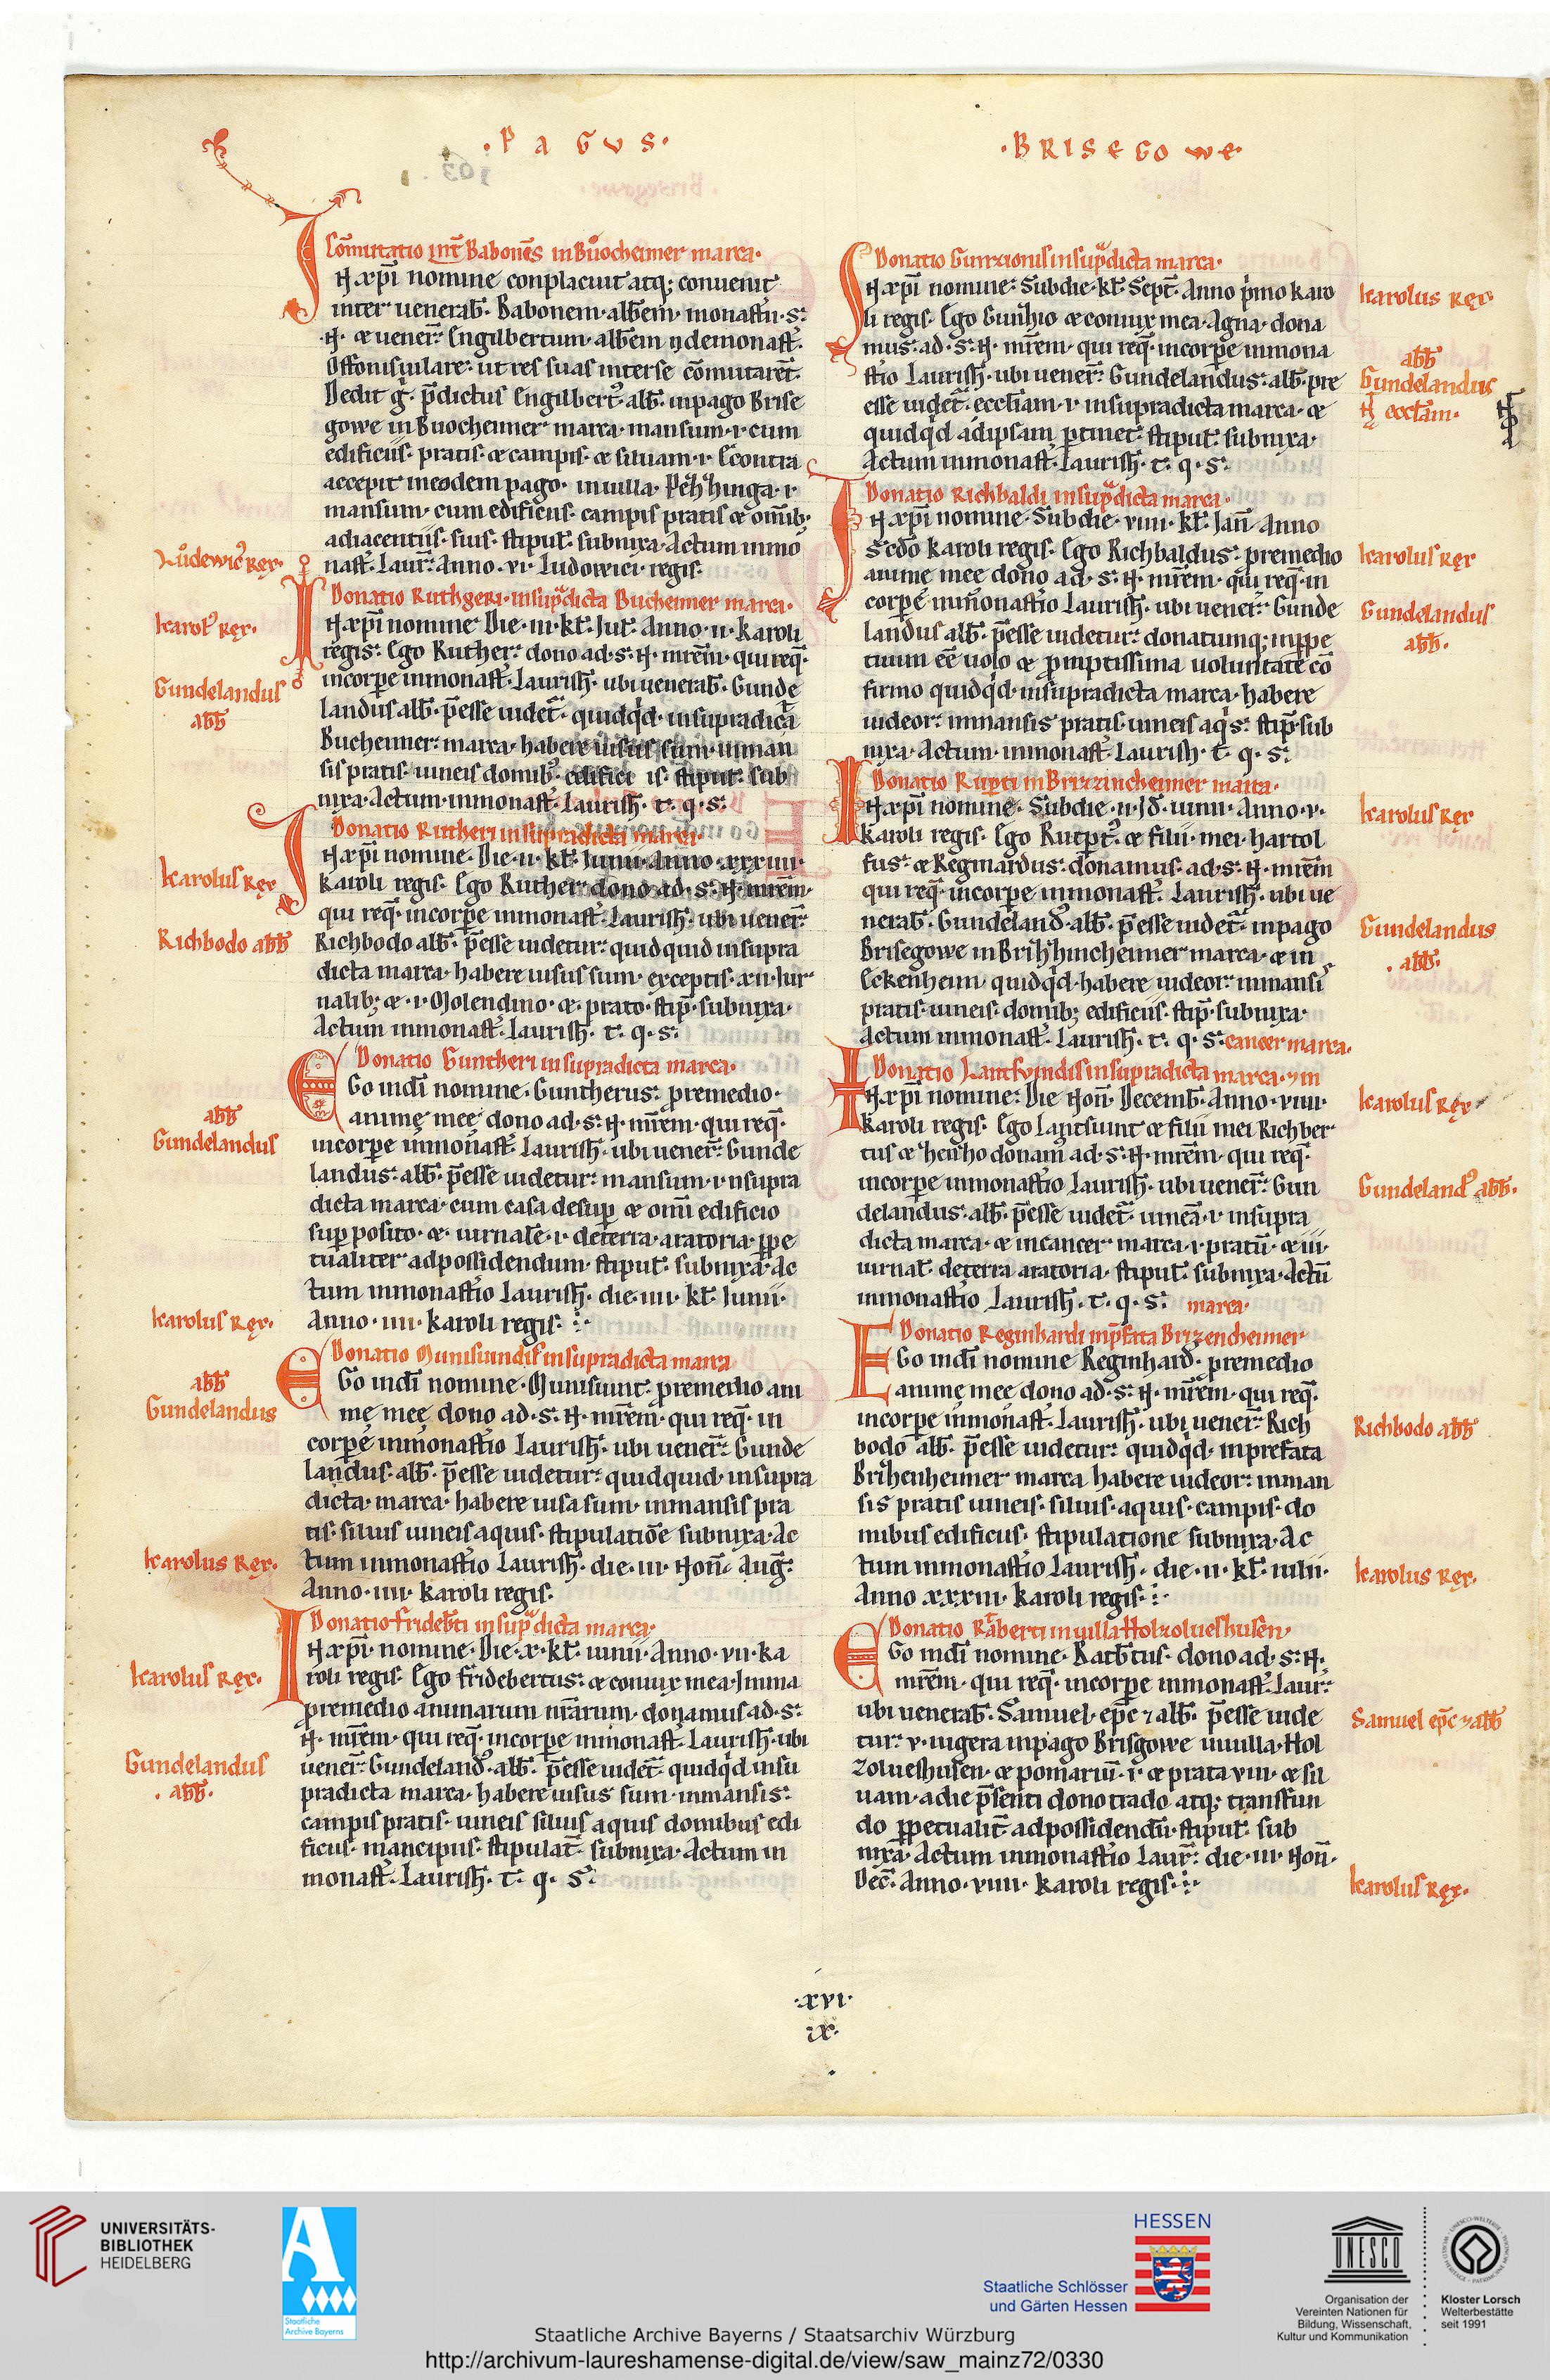 ·PAGVS·
·BRISEGOWE·
Cōmutatio int̄ Babonēs in Bůocheimer marca·
IN xp̄i nomine conplacuit atq; conuenit
inter uenerab̄· Babonem· abb̄em· monast̄ii· S·
N· et uener̄· Engilbertum· abb̄em ydemonast̄·
Offonisuilare· ut res suas inter se cōmutarēt·
Dedit g̊· p̄dictus Engilbert᾽· abb̄· inpago Brise
gowe in Buocheimer marca· mansum·I· cum
edificiis· pratis· et campis· et siluam·I· Econtra
accepit ineodem pago· inuilla· Pehhinga·I·
mansum· cum edificiis· campis pratis et omīb;
adiacentiis· suis· stipul̄· subnixa· Actum inmo
nast̄· Laur̄· Anno·VI· Ludowici regis·
Lůdewic᾽ Rex·
Donatio Ruthgeri· insup̄dicta Bucheimer marca·
IN xp̄i nomine Die·III·kl̄· Jul̄· Anno·II· Karoli
regis· Ego Ruther· dono ad·S·N· mr̄em· qui req̄·
incorpe inmonast̄· Laurish̄· ubi uenerab̄· Gunde
landus abb̄· p̄esse uidet̄· quidq̇d· insupradicta
Bucheimer· marca· habere uisus sum· inman
sis pratis· uineis domib᾽· edifici is· stipul̄· sub
nixa· Actum· inmonast̄· Laurish̄· T· q· S·
Karol᾽ Rex·
Gundelandus
abb̄
Donatio Rutheri insupradicta marca·
IN xp̄i nomine· Die·II· kl̄· Iunii· Anno·XXXIIII·
Karoli regis· Ego Ruther· dono ad·S·N· mr̄em·
qui req̄· incorpe inmonast̄· Laurish̄· ubi uener̄·
Richbodo abb̄· p̄esse uidetur· quidquid insupra
dicta marca· habere uisus sum· exceptis·XII· Iur
nalib; et·I· Molendino· et· prato· stip̄· subnixa·
Actum inmonast̄· Laurish̄· T· q· S·
Karolus Rex
Richbodo abb̄
Donatio Guntheri insupradicta marca·
EGo indī nomine· Guntherus· premedio·
animę meę dono ad·S·N· mr̄em· qui req̄·
incorpe inmonast̄· Laurish̄· ubi uener̄· Gunde
landus· abb̄· p̄esse uidetur· mansum·I· insupra
dicta marca· cum casa desup et omi edificio
sup posito· et· iurnale·I· deterra· aratoria· ppe
tualiter adpossidendum· stipul̄· subnixa· Ac
tum inmonast̄io Laurish̄· die·IIII· kl̄· Iunii·
Anno·IIII· Karoli regis·
abb̄
Gundelandus
Karolus Rex·
Donatio Munisuindis insupradicta marca
EGo indī nomine· Munisuint· premedio ani
mę meę dono ad·S·N· mr̄em· qui req̄· in
corpe inmonast̄io Laurish̄· ubi uener̄· Gunde
landus· abb̄· p̄esse uidetur· quidquid· insupra
dicta· marca· habere uisa sum· inmansis pra
tis· siluis uineis aquis· stipulatiōe subnixa· Ac
tum inmonast̄io Laurish̄· die·III· Non̄· Aug̅·
Anno·IIII· Karoli regis·
abb̄
Gundelandus
Karolus Rex·
Donatio Frideb̄ti insup̄dicta marca·
IN xp̄i· nomine· Die·X·kl̄· iunii· Anno·VII· Ka
roli regis· Ego Fridebertus· et coniux mea· Imma
premedio animarum nr̄arum· donamus ad·S·
N· mr̄em· qui req̄· incorpe inmonast̄· Laurish̄· ubi
uener̄· Gundeland᾽· abb̄· p̄esse uidet̄· quidq̇d insu
pradicta marca· habere uisus sum· inmansis·
campis pratis· uineis siluis aquis domibus edi
ficiis· mancipiis· stipulat̄· subnixa· Actum in
monast̄· Laurish̄· T· q· S·
Karolus Rex·
Gundelandus
·abb̄·
Donatio Gunzionis insup̄dicta marca·
IN xp̄i nomine· Subdie·kl̄· Sept̄· Anno p̄mo Karo
li regis· Ego Gunzio et coniux mea· Agna· dona
mus· ad·S·N· mr̄em· qui req̄· incorpe inmona
st̄io Laurish̄· ubi uener̄· Gundelandus· abb̄· pre
esse uidet̄· eccl̄iam·I· insupradicta marca· et
quidq̇d adipsam ptinet· stipul̄· subnixa·
Actum inmonast̄· Laurish̄· T· q· S·
Karolus Rex·
abb̄
Gundelandus
N eccl̄am·
Donatio Richbaldi insup̄dicta marca·
IN xp̄i nomine· Subdie·VIIII· kl̄· Jan̄· Anno
S̄cdo Karoli regis· Ego Richbaldus· premedio
anime mee dono ad·S·N· mr̄em· qui req̄· in
corpe inmonast̄io Laurish̄· ubi uener̄· Gunde
landus abb̄· p̄esse uidetur· donatumq; inppe
tuum eē uolo et promptissima uoluntate cō
firmo quidq̇d· insupradicta marca· habere
uideor· inmansis pratis uineis aq̇s· stip̄· sub
nixa· Actum· inmonast̄· Laurish̄· T· q· S·
Karolus Rex
Gundelandus
abb̄·
Donatio Rupti in Brizzincheimer marca·
IN xp̄i nomine· Subdie·II· Id̄· iunii· Anno·V·
Karoli regis· Ego Rutpt᾽· et filii· mei· Hartol
fus· et Reginardus· donamus· ad·S·N· mr̄em
qui req̄· incorpe inmonast̄· Laurish̄· ubi ue
nerab̄· Gundeland᾽ abb̄· p̄esse uidet̄· inpago
Brisegowe in Brihhincheimer marca· et in
Eckenheim· quidq̇d· habere uideor· inmansis
pratis· uineis· domib; edificiis· stip̄· subnixa·
Actum inmonast̄· Laurish̄· T· q· S· cancer marca·
Karolus Rex
Gundelandus
·abb̄·
Donatio Lantsuindis insupradicta marca· ⁊ in
IN xp̄i nomine· Die Non̄· Decemb̄· Anno·VIIII·
Karoli regis· Ego Lantsuint et filii mei Richber
tus et heriho donam᾽ ad·S·N· mr̄em· qui req̄·
incorpe inmonast̄io Laurish̄· ubi uener̄· Gun
delandus· abb̄· p̄esse uidet̄· uineā·I· insupra
dicta marca· et incancer marca·I· pratū· et III·
iurnal̄· deterra aratoria· stipul̄· subnixa· Actū
inmonast̄io Laurish̄· T· q· S·
Karolus Rex
Gundeland᾽ abb̄·
marca·
Donatio Reginhardi inp̄fata Brizencheimer
EGo indī nomine Reginhard᾽· premedio
animę meę dono ad·S·N· mr̄em· qui req̄·
incorpe inmonast̄· Laurish̄· ubi uener̄· Rich
bodo abb̄· p̄esse uidetur· quidq̇d· inprefata
Brihenheimer marca habere uideor· inman
sis pratis uineis· siluis· aquis· campis· do
mibus edificiis· stipulatione subnixa· Ac
tum inmonast̄io Laurish̄· die·II· kl̄· iulii·
Anno XXXIII· Karoli regis·
Richbodo abb̄
Karolus Rex·
Donatio Ratberti inuilla Holzolueshusen·
EGo indī nomine· Ratb̄tus· dono ad·S·N·
mr̄em· qui req̄· incorpe inmonast̄· Laur̄·
ubi uenerab̄· Samuel· ep̄c ⁊ abb̄· p̄esse uide
tur·V·iugera inpago Brisgowe inuilla· Hol
zolueshusen· et pomariū·I· et prata VIII· et sil
uam· adie p̄senti dono trado atq; transfun
do ppetualit̄ adpossidendū· stipul̄· sub
nixa· Actum inmonast̄io Laur̄· die·III· Non̄·
Dec̄· Anno·VIIII· Karoli regis·
Samuel ep̄c ⁊ abb̄
Karolus Rex·
·xvi·
ix·
UNIVERSITÄTS-
BIBLIOTHEK
HEIDELBERG
Staatliche
Archive Bayerns
HESSEN
Staatliche Schlösser
und Gärten Hessen
UNESCO
Organisation der
Vereinten Nationen für
Bildung, Wissenschaft,
Kultur und Kommunikation
Kloster Lorsch
Welterbestätte
seit 1991
Staatliche Archive Bayerns / Staatsarchiv Würzburg
http://archivum-laureshamense-digital.de/view/saw_mainz72/0330